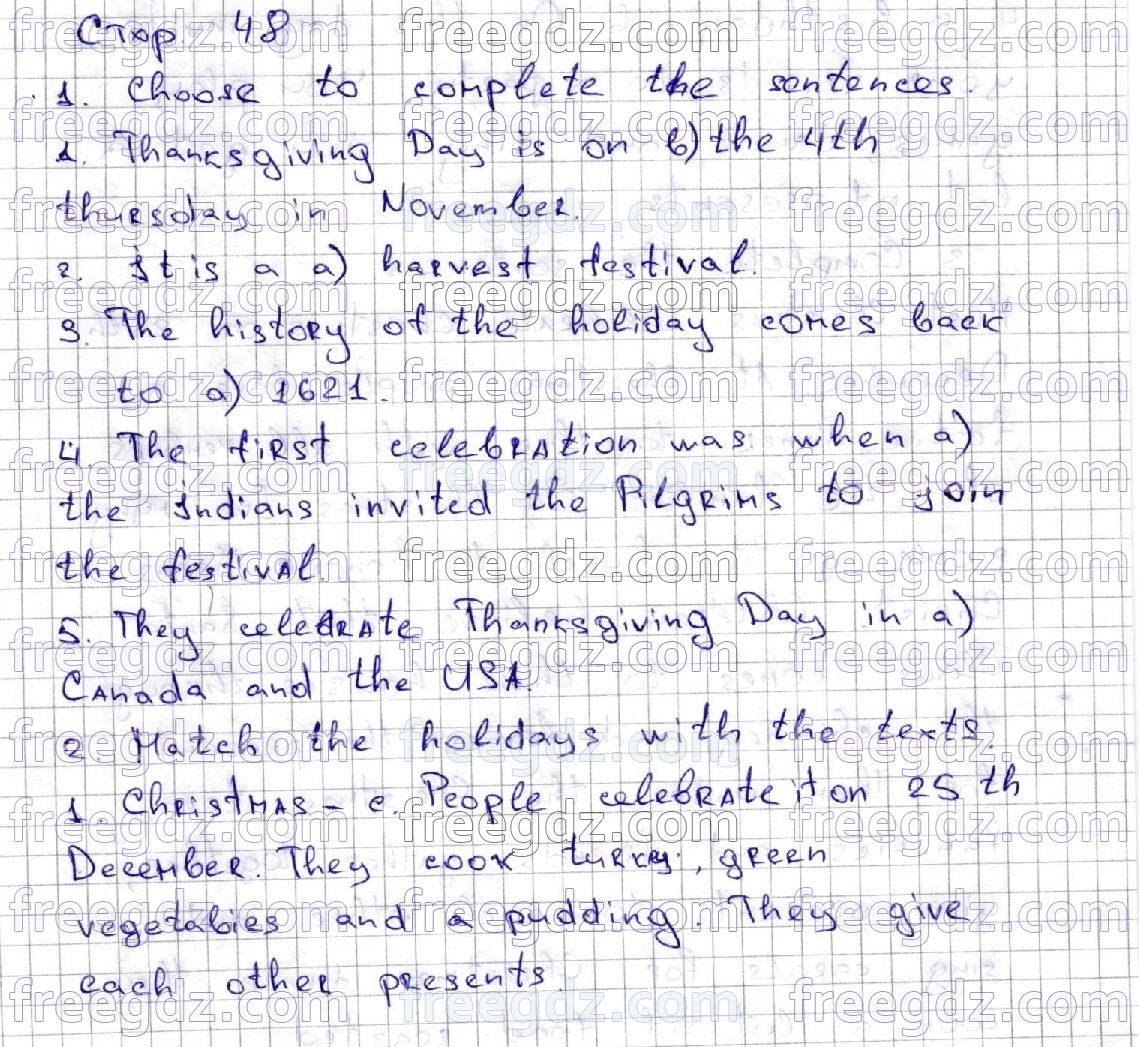 Стор. 48
1. Choose to complete the sentences.
1. Thanksgiving Day is on b) the 4th
thursday in November.
2. It is a a) harvest festival.
3. The history of the holiday comes back
to a) 1621.
4. The first celebration was when a)
the Indians invited the Pilgrims to join
the festival.
5. They celebrate Thanksgiving Day in a)
Canada and the USA.
2. Match the holidays with the texts.
1. Christmas – c. People celebrate it on 25 th
December. They cook turkey, green
vegetables and a pudding. They give
each other presents.
freegdz.com